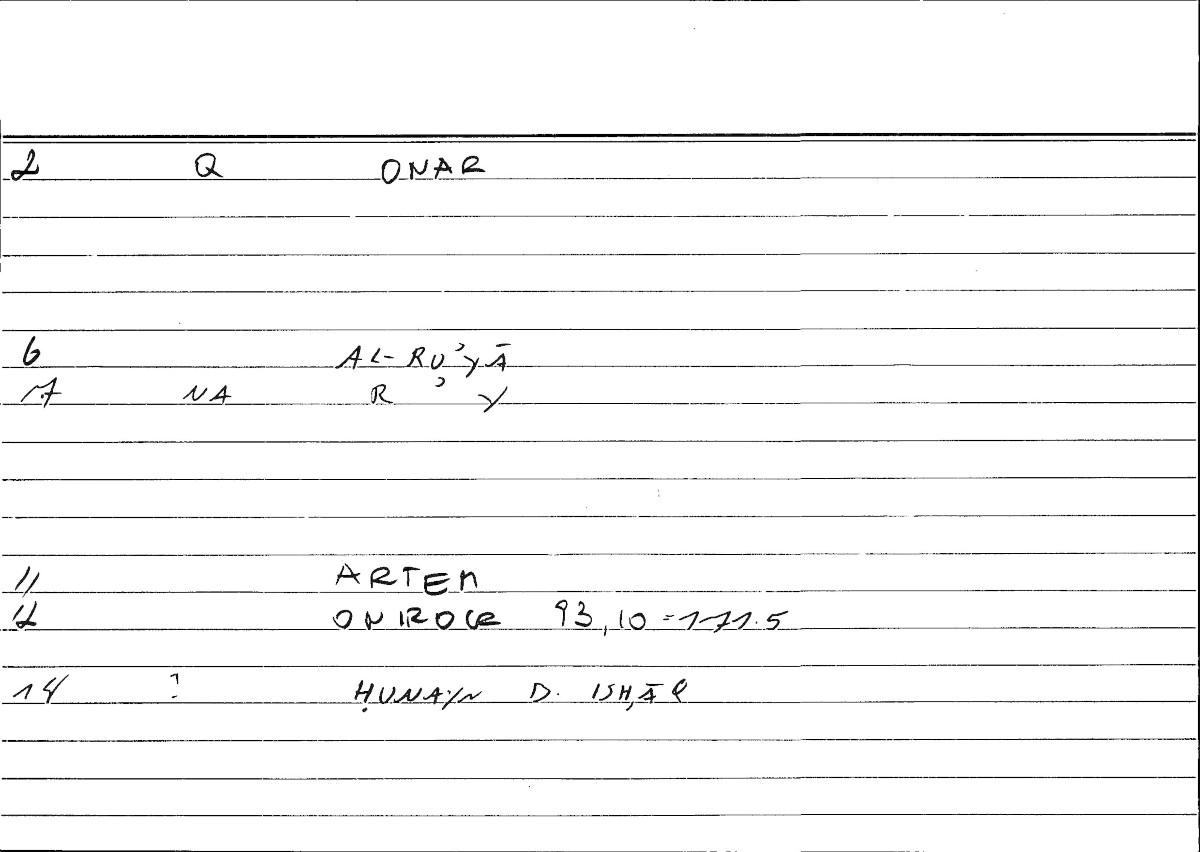 2 Q ONAR
6 AL-RU'YĀ
7 NA R ' Y
11 ARTEM
12 ONIROCR 93,10 = 171.5
14 ? ḤUNAYN B. ISḤĀQ